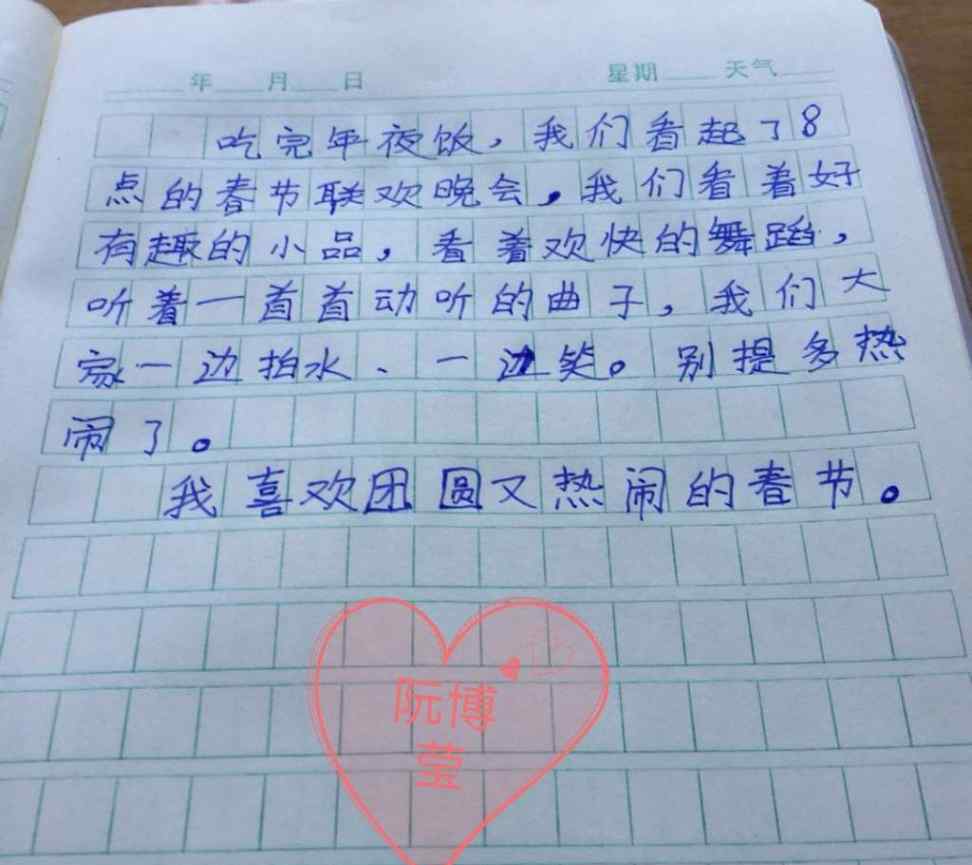 年 月 日 星期 天气
吃完年夜饭，我们看起了8
点的春节联欢晚会，我们看着好
有趣的小品，看着欢快的舞蹈，
听着一首首动听的曲子，我们大
家一边拍水、一边笑。别提多热
闹了。
我喜欢团圆又热闹的春节。
阮博
莹